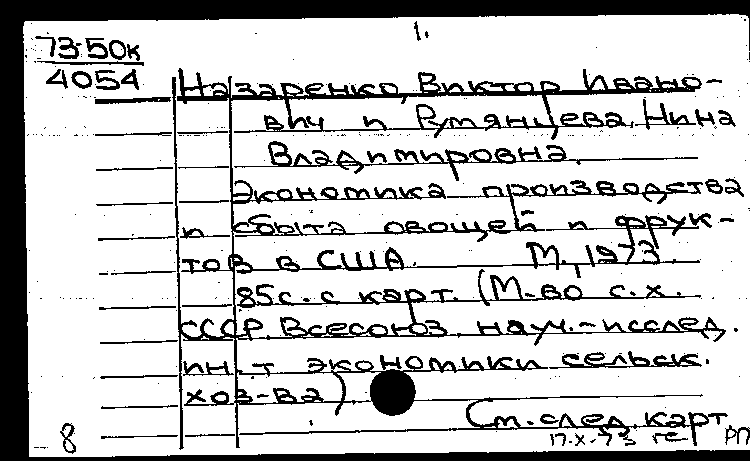 1.
73-50к
4054
Назаренко, Виктор Ивано-
вич и Румянцева, Нина
Владимировна.
Экономика производства
и сбыта овощей и фрук-
тов в США. М., 1973.
85с. с карт. (М-во с.х.
СССР. Всесоюз. науч.-исслед.
ин-т экономики сельск.
хоз-ва).
См. след. карт.
8
17.X-73 РП